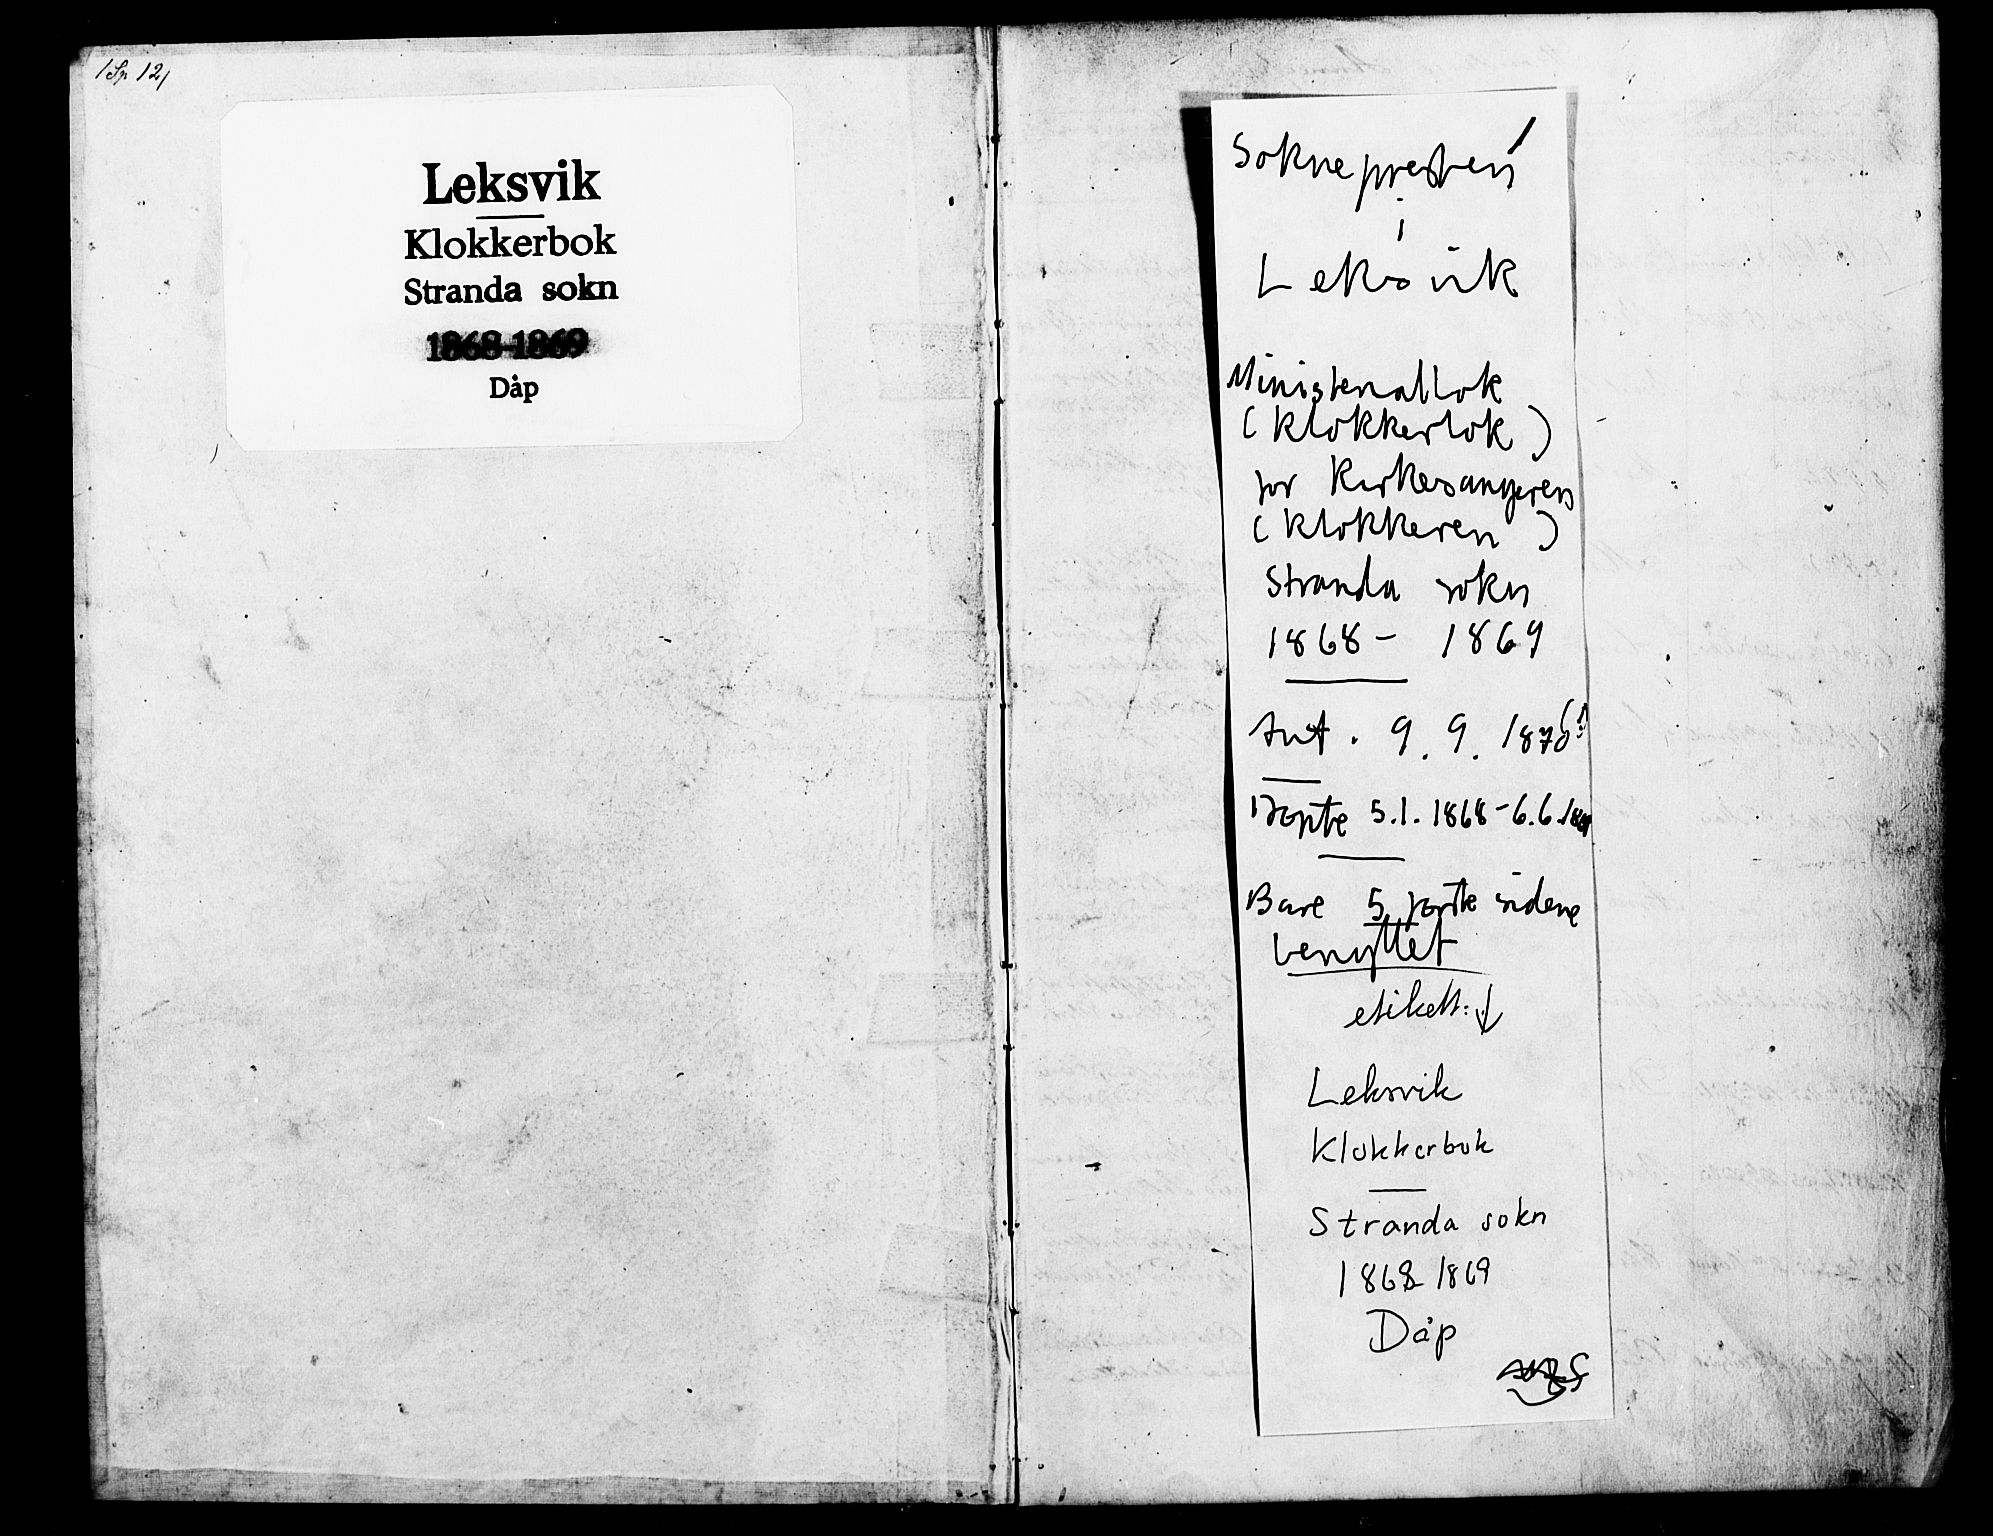 1Sp 12/
Leksvik
Klokkerbok
Stranda sokn
1868-1869
Dåp
Soknepresten
i
Leksvik
Ministerialbok
(Klokkerbok)
for Kirkesangeren
(Klokkeren)
Stranda sokn
1868- 1869
Aut. 9. 9. 1876
Døpte 5.1. 1868-6.6.1869
Bare 5 første sidene
benyttet
etikett: ↓
Leksvik
Klokkerbok
Stranda sokn
1868 1869
Dåp